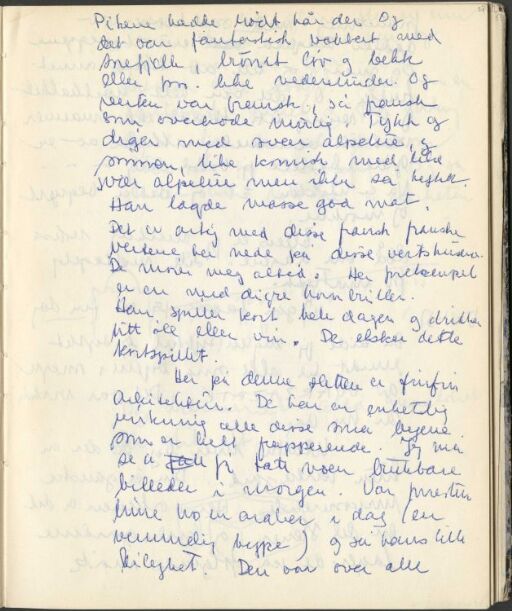 Pikene hadde rødt hår der og
det var fantastisk vakkert med
snefjelle brönst löv og bekk
eller fos. like nedenunder. Og
verten var fransk, så fransk
som overhode mulig. Tykk og
diger med svær alpelue, og
sönnen, like komisk med like
svær alpelue men ikke så tykk.
Han lagde masse god mat.
Det er artig med disse fransk franske
vertene her nede på disse vertshusene.
De morer meg alltid. Her for eksempel
er en med digre hornbriller.
Han spiller kort hele dagen og drikker
litt öll eller vin. De elsker dette
kortspillet.
Her på denne sletten er finfin
arkitektur. De har en enhetlig
virkning alle disse små byene
som er helt frapperende. Jeg må
se å få tatt noen brukbare
billeder i morgen. Var
hine hos en araber i dag (en
vemmelig) og så hans lille
leilighet. Den var over alle